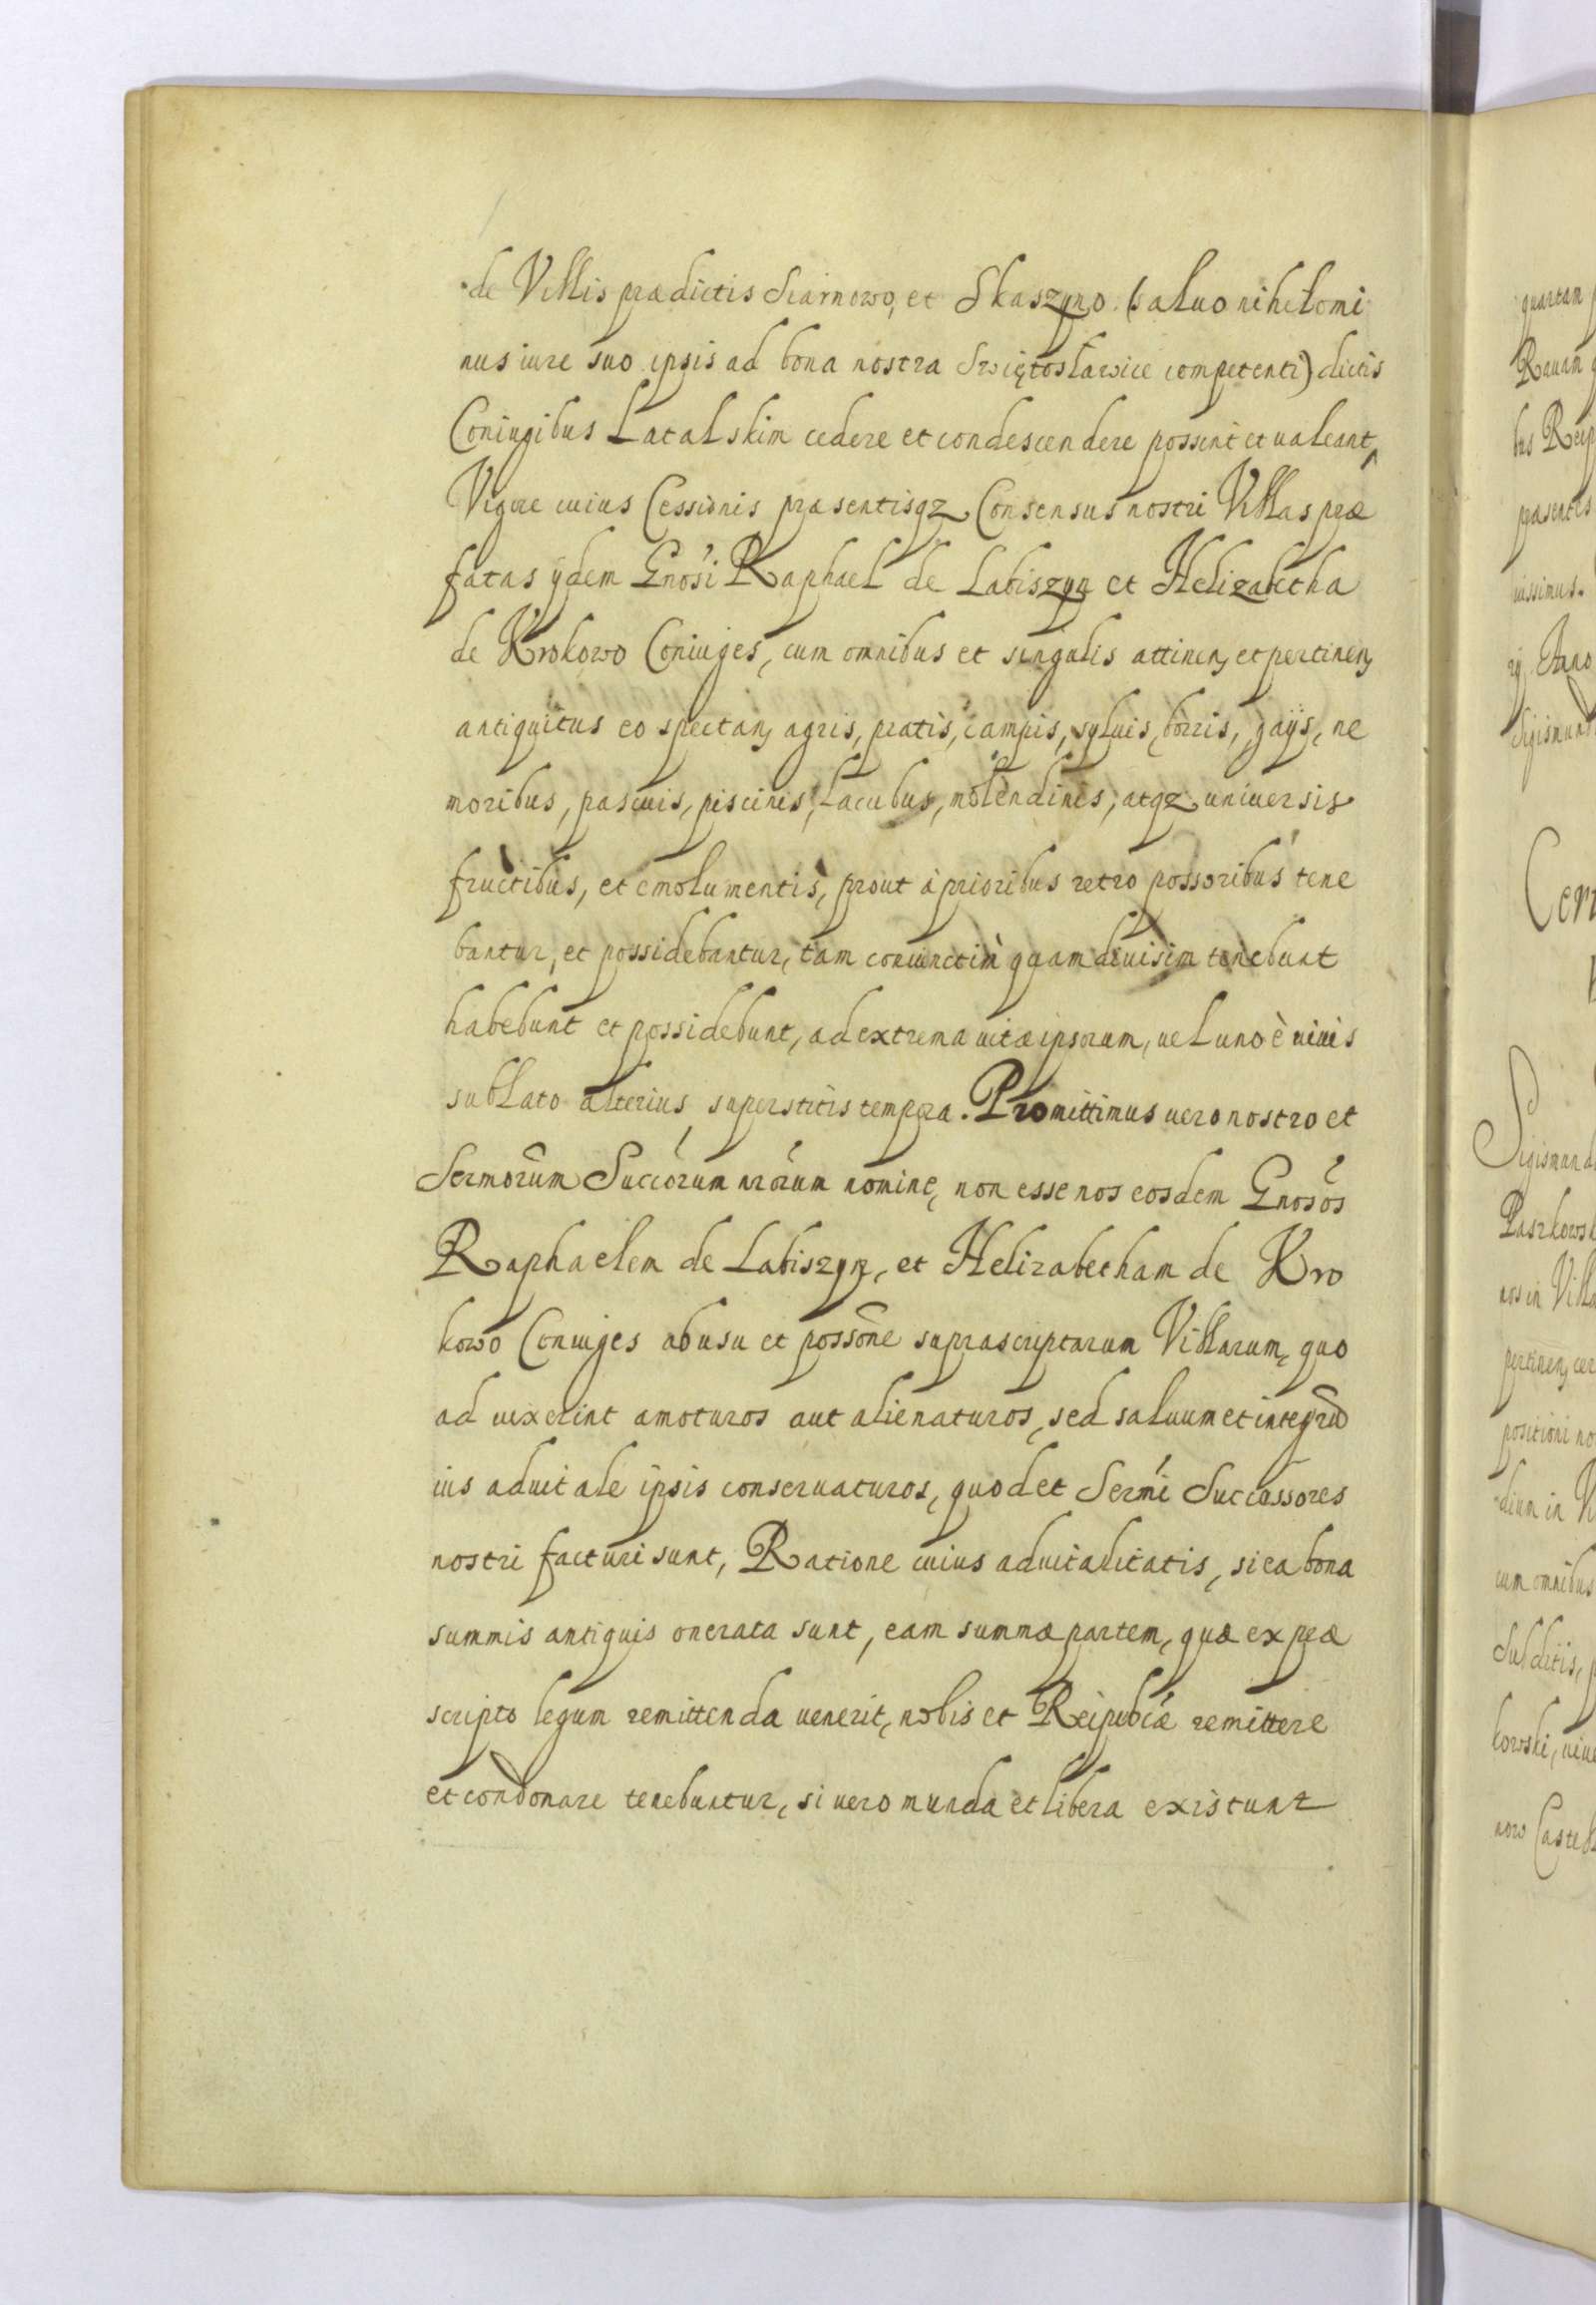 de Villis prædictis Sciarnowo, et Skaszyno. (saluo nihilomi
nus iure suo ipsis ad bona nostra Swiętosławice competenti) dictis
Coniugibus Latalskim cedere et condescendere possint et ualeant,
Vigore cuius Cessionis præsentisqz Consensus nostri Villas præ
fatas ijdem Gnosi Raphael de Labiszyn et Helizabetha
de Krokowo Coniuges, cum omnibus et singulis attinen, et pertinen,
antiquitus eo spectan, agris, pratis, campis, syluis, borris, gaijs, ne
moribus, pascuis, piscinis, Lacubus, molendinis, atqz uniuersis
fructibus, et emolumentis, prout à prioribus retro possoribus tene
bantur, et possidebantur, tam coniunctim quam diuisim tenebunt
habebunt et possidebunt, ad extrema uitæ ipsorum, uel uno è uiuis
sublato alterius superstitis tempora. Promittimus uero nostro et
Sermorum Succorum nrorum nomine, non esse nos eosdem Gnosos
Raphaelem de Labiszyn, et Helizabetham de Kro
kowo Coniuges ab usu et possone suprascriptarum Villarum, quo
ad uixerint amoturos aut alienaturos, sed saluum et integrũ
ius aduitale ipsis conseruaturos, quod et Sermi Successores
nostri facturi sunt, Ratione cuius aduitalitatis, si ea bona
summis antiquis onerata sunt, eam summæ partem, quæ ex præ
scripto legum remittenda uenerit, nobis et Reipubcæ remittere
et condonare tenebuntur, si uero munda et libera existunt
quartam
Rauam
bus Reip
præsentis
uissimus.
rij Anno
Sigismund
Sigismund
Paszkowsk
nos in Villa
pertinen, cer
positioni no
dium in Vi
cum omnibus
Subditis,
kowski, uiue
now Castell